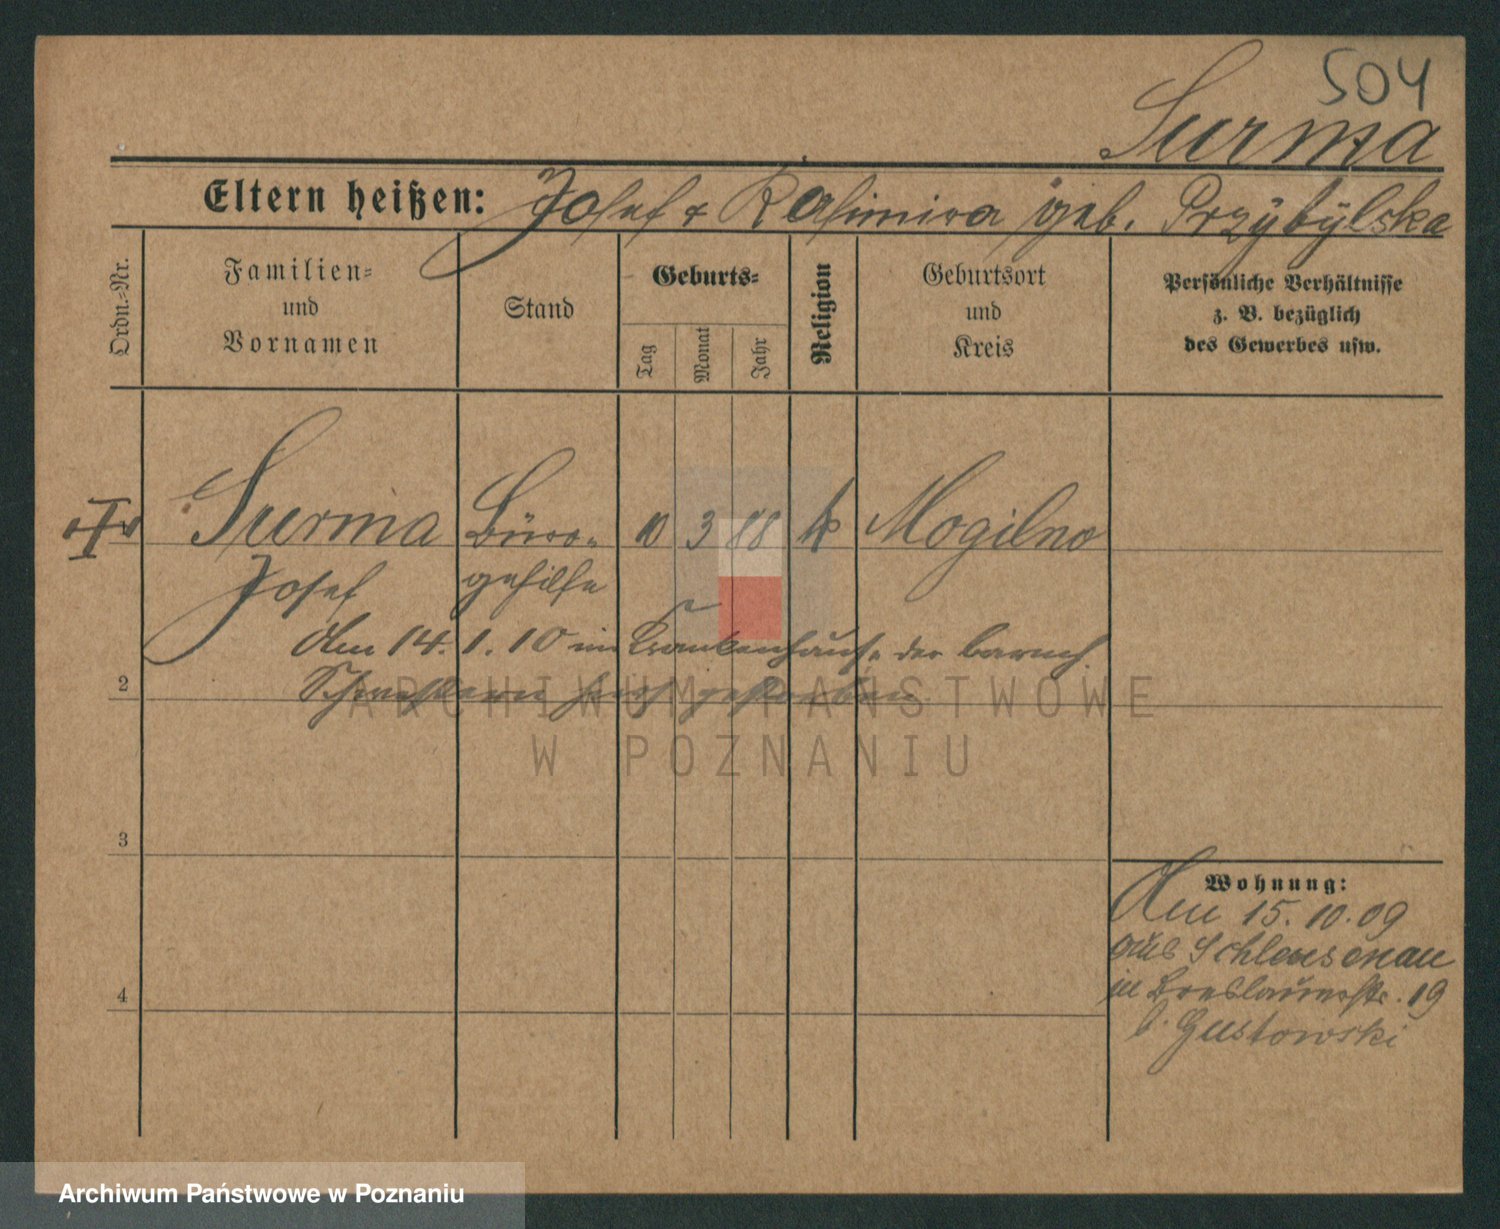 504
Surma
Eltern heißen: Josef & Kasimira geb. Przybylska
Ordn.-Nr.
Familien-
und
Vornamen
Stand
Geburts-
Tag
Monat
Jahr
Religion
Geburtsort
und
Kreis
Persönliche Verhältnisse
z. B. bezüglich
des Gewerbes usw.
Surma Büro- 10 3 88 k Mogilno
Josef gehilfe
Am 14. 1. 10 im Krankenhause der barmh.
Schwestern hier gestorben
2
ARCHIWUM PAŃSTWOWE
W POZNANIU
3
Wohnung:
Am 15. 10. 09
aus Schleusenau
in Breslauerstr. 19
b. Gustowski
4
Archiwum Państwowe w Poznaniu